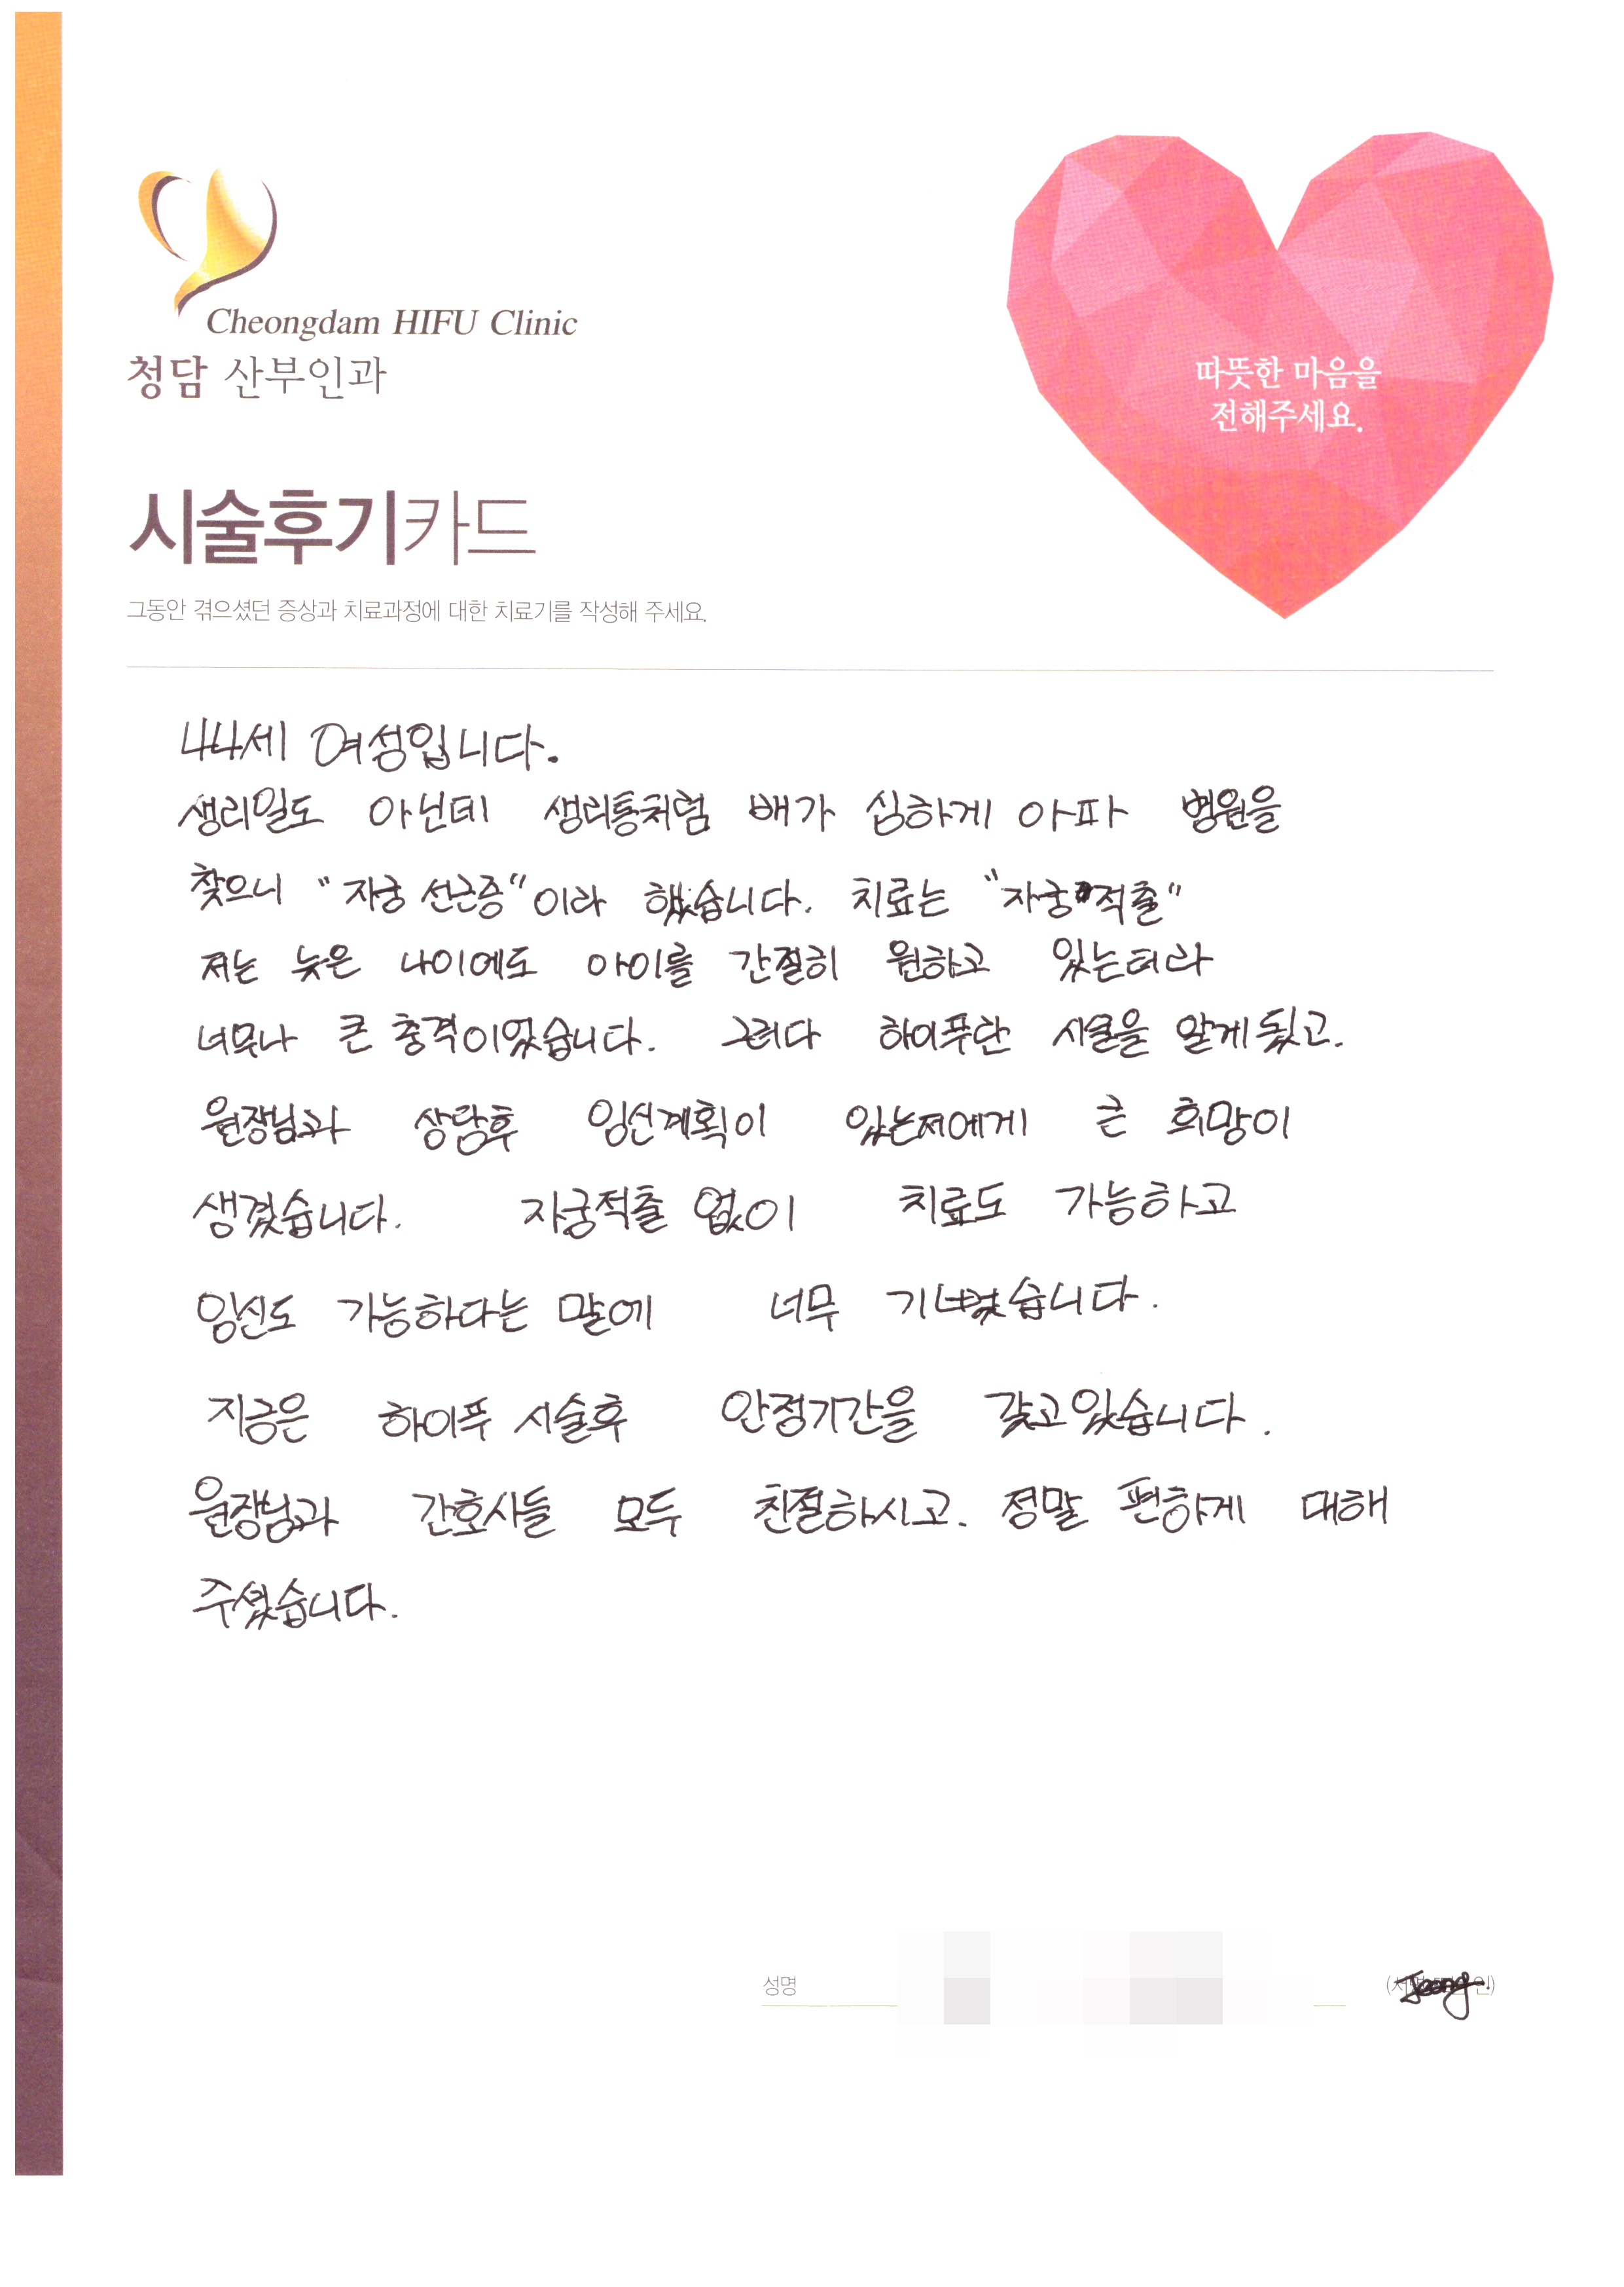 Cheongdam HIFU Clinic
청담 산부인과
따뜻한 마음을
전해주세요.
시술후기카드
그동안 겪으셨던 증상과 치료과정에 대한 치료기를 작성해 주세요.
44세 여성입니다.
생리일도 아닌데 생리통처럼 배가 심하게 아파 병원을
찾으니 "자궁 선근증"이라 했습니다. 치료는 "자궁적출"
저는 늦은 나이에도 아이를 간절히 원하고 있는터라
너무나 큰 충격이었습니다. 그러다 하이푸란 시술을 알게됬고.
원장님과 상담후 임신계획이 있는저에게 큰 희망이
생겼습니다. 자궁적출 없이 치료도 가능하고
임신도 가능하다는 말에 너무 기뻤습니다.
지금은 하이푸 시술후 안정기간을 갖고있습니다.
원장님과 간호사들 모두 친절하시고. 정말 편하게 대해
주셨습니다.
성명
Jeong